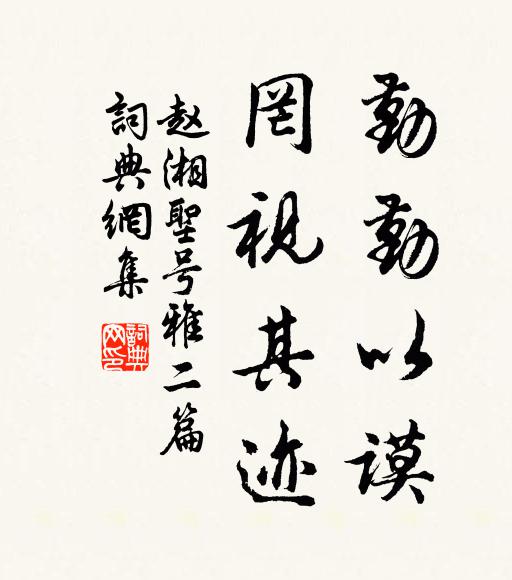 勤勤以谟
罔视其迹
赵湘聖号雅二篇
詞典網集
詞典
网印